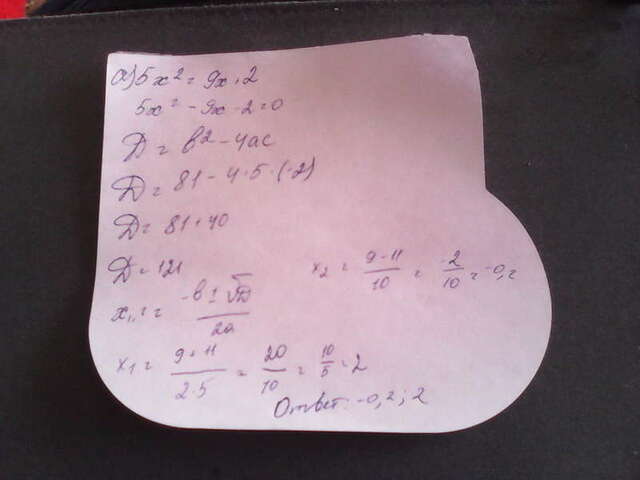 а) 5x² = 9x + 2
5x² - 9x - 2 = 0
D = b² - 4ac
D = 81 - 4·5·(-2)
D = 81 + 40
D = 121
x₁,₂ = (-b ± √D)/2a
x₁ = (9+11)/(2·5) = 20/10 = 10/5 = 2
x₂ = (9-11)/10 = -2/10 = -0,2
Ответ: -0,2; 2